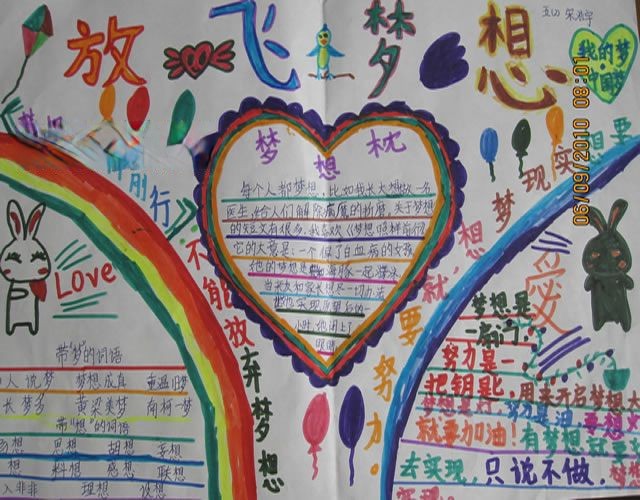 放飞梦想
我的梦
中国梦
06/09/2010 08:01
梦想
行
不能放弃梦想
要实现梦想,就要努力。
爱
Love
梦想枕
每个人都梦想,比如我长大想做一名
医生,给人们解除病魔的折磨,关于梦想
的短文有很多,我喜欢《梦想照样前行》
它的大意是:一个得了白血病的女孩
她的梦想是和海豚一起潜水
带"梦"的词语
人说梦 梦想成真 重温旧梦
长梦多 黄梁美梦 南柯一梦
带"想"的词语
思想 胡想 妄想
想 料想 感想 联想
入非非 理想 设想
梦想是
一扇门,
努力是一
把钥匙,用来开启梦想大
梦想是灯,努力是油,要想
就要加油!有梦想就要
去实现,只说不做,